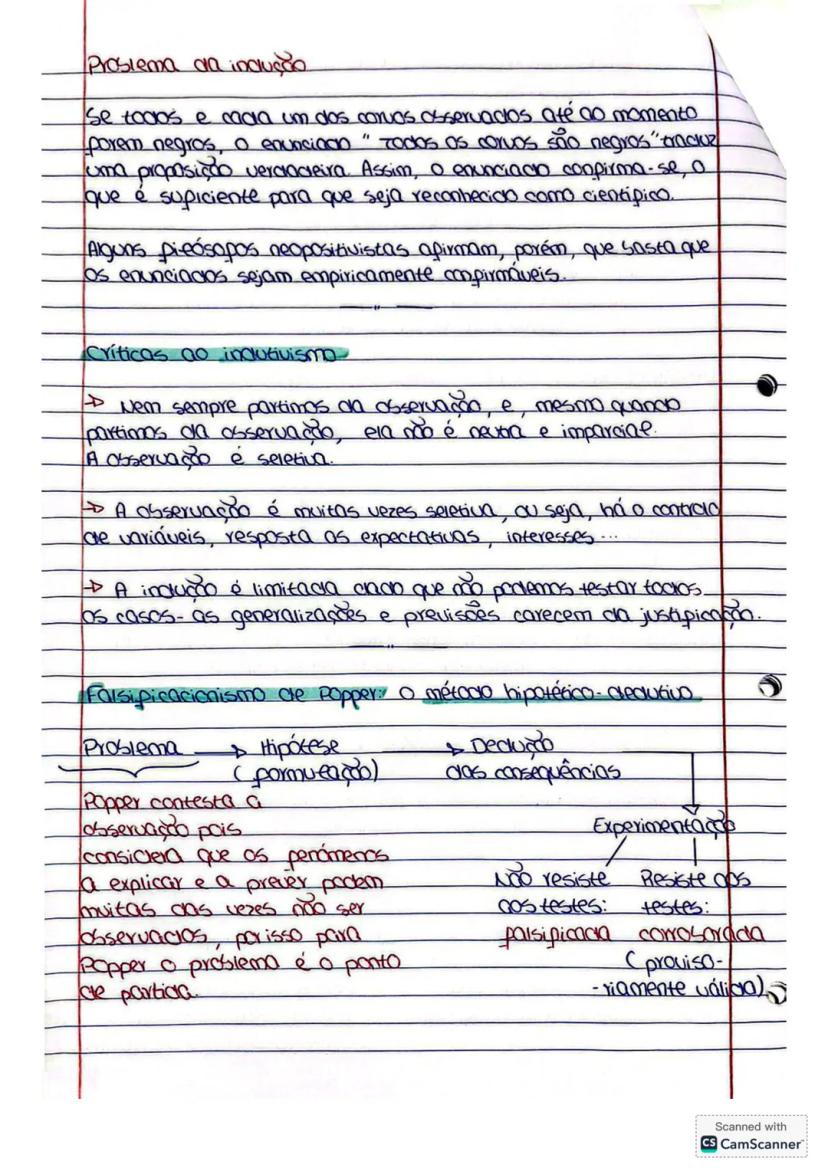 Problema da indução
Se todos e cada um dos corvos observados até ao momento
forem negros, o enunciado " Todos os corvos são negros" traduz
uma proposição verdadeira. Assim, o enunciado confirma-se, o
que é suficiente para que seja reconhecido como científico.
Alguns filósofos neopositivistas afirmam, porém, que basta que
os enunciados sejam empiricamente confirmáveis.
Críticas ao indutivismo
→ Nem sempre partimos da observação, e, mesmo quando
partimos da observação, ela não é neutra e imparcial.
A observação é seletiva.
→ A observação é muitas vezes seletiva, ou seja, há o controlo
de variáveis, resposta as expectativas, interesses...
→ A indução é limitada dado que não podemos testar todos
os casos- as generalizações e previsões carecem da justificação.
Falsificacionismo de Popper: o método hipotético-dedutivo
Problema → Hipótese → Dedução
(formulação) das consequências
Popper contesta a
observação pois
considera que os fenómenos
a explicar e a prever podem
muitas das vezes não ser
observados, por isso para
Popper o problema é o ponto
de partida.
Experimentação
Não resiste Resiste aos
aos testes: testes:
falsificada corroborada
(proviso-
-riamente válida)
Scanned with
CS CamScanner